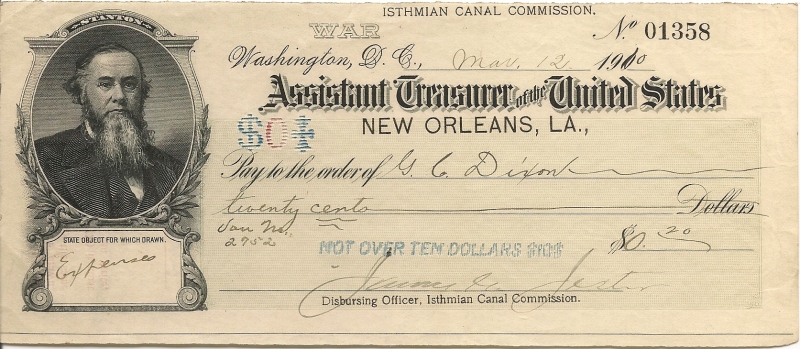 ISTHMIAN CANAL COMMISSION.
WAR
No 01358
Washington, D. C., Mar. 12 1910
Assistant Treasurer of the United States
NEW ORLEANS, LA.,
$0¢
Pay to the order of G. C. Dixon
twenty cents Dollars
2752
NOT OVER TEN DOLLARS $10$
$0.20
Disbursing Officer, Isthmian Canal Commission.
STANTON
STATE OBJECT FOR WHICH DRAWN.
Expenses